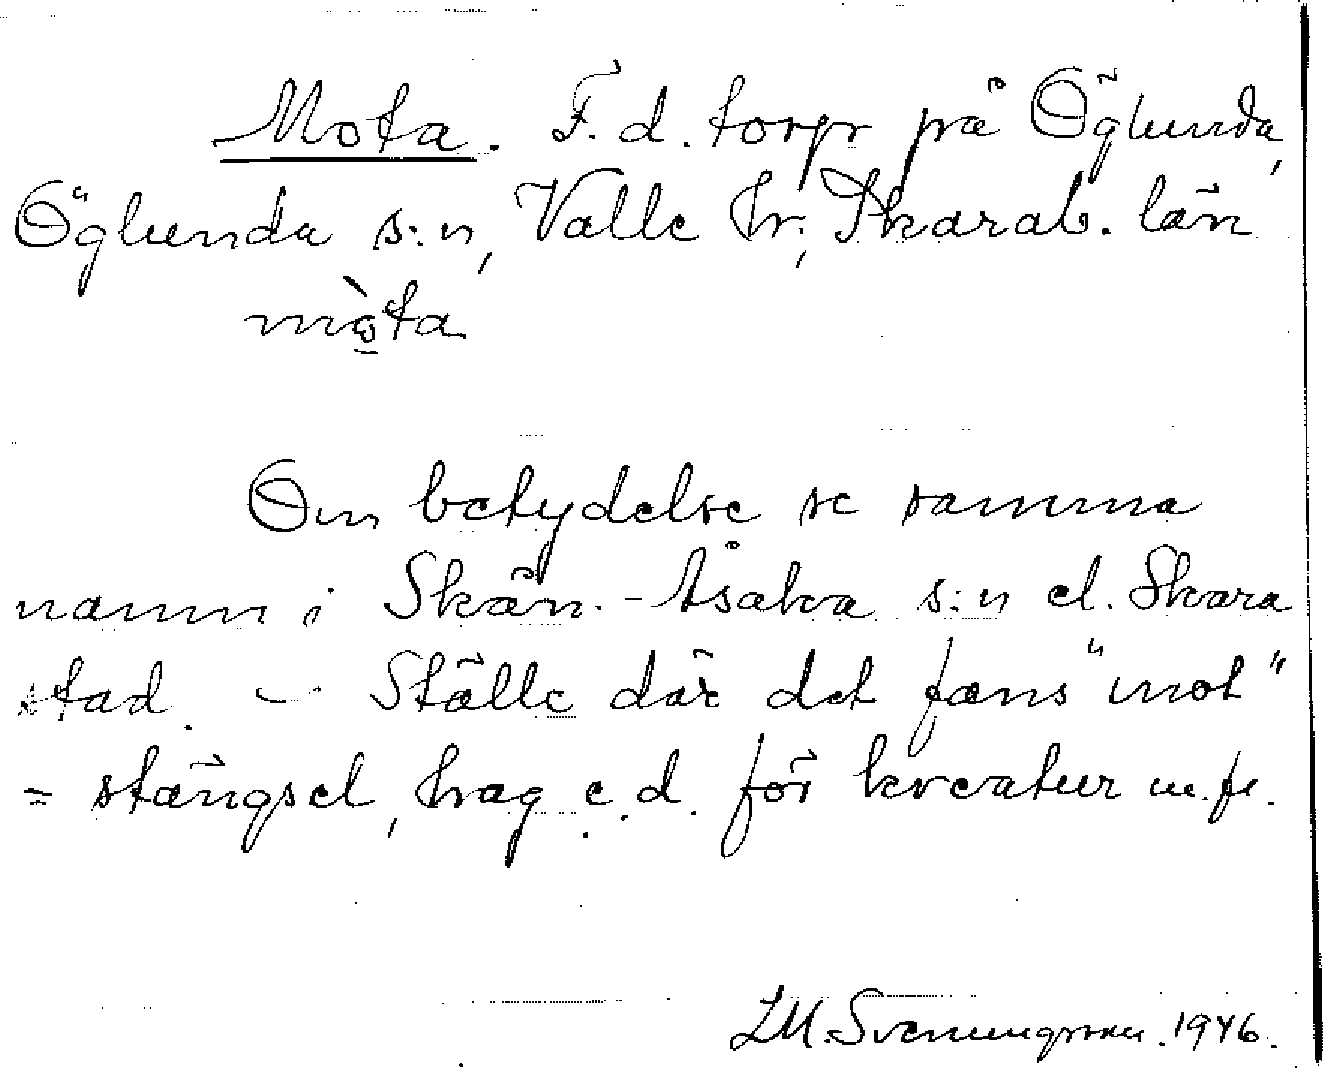 Mota. F. d. torp på Öglunda,
Öglunda s:n, Valle hr; Skarab. län
mò̱ta
Om betydelse se samma
namn i Skän.-Åsaka s:n el. Skara
stad. – Ställe där det fans "mot"
= stängsel, hag e. d. för kreatur m. fl.
LM. Svenungsson. 1946.